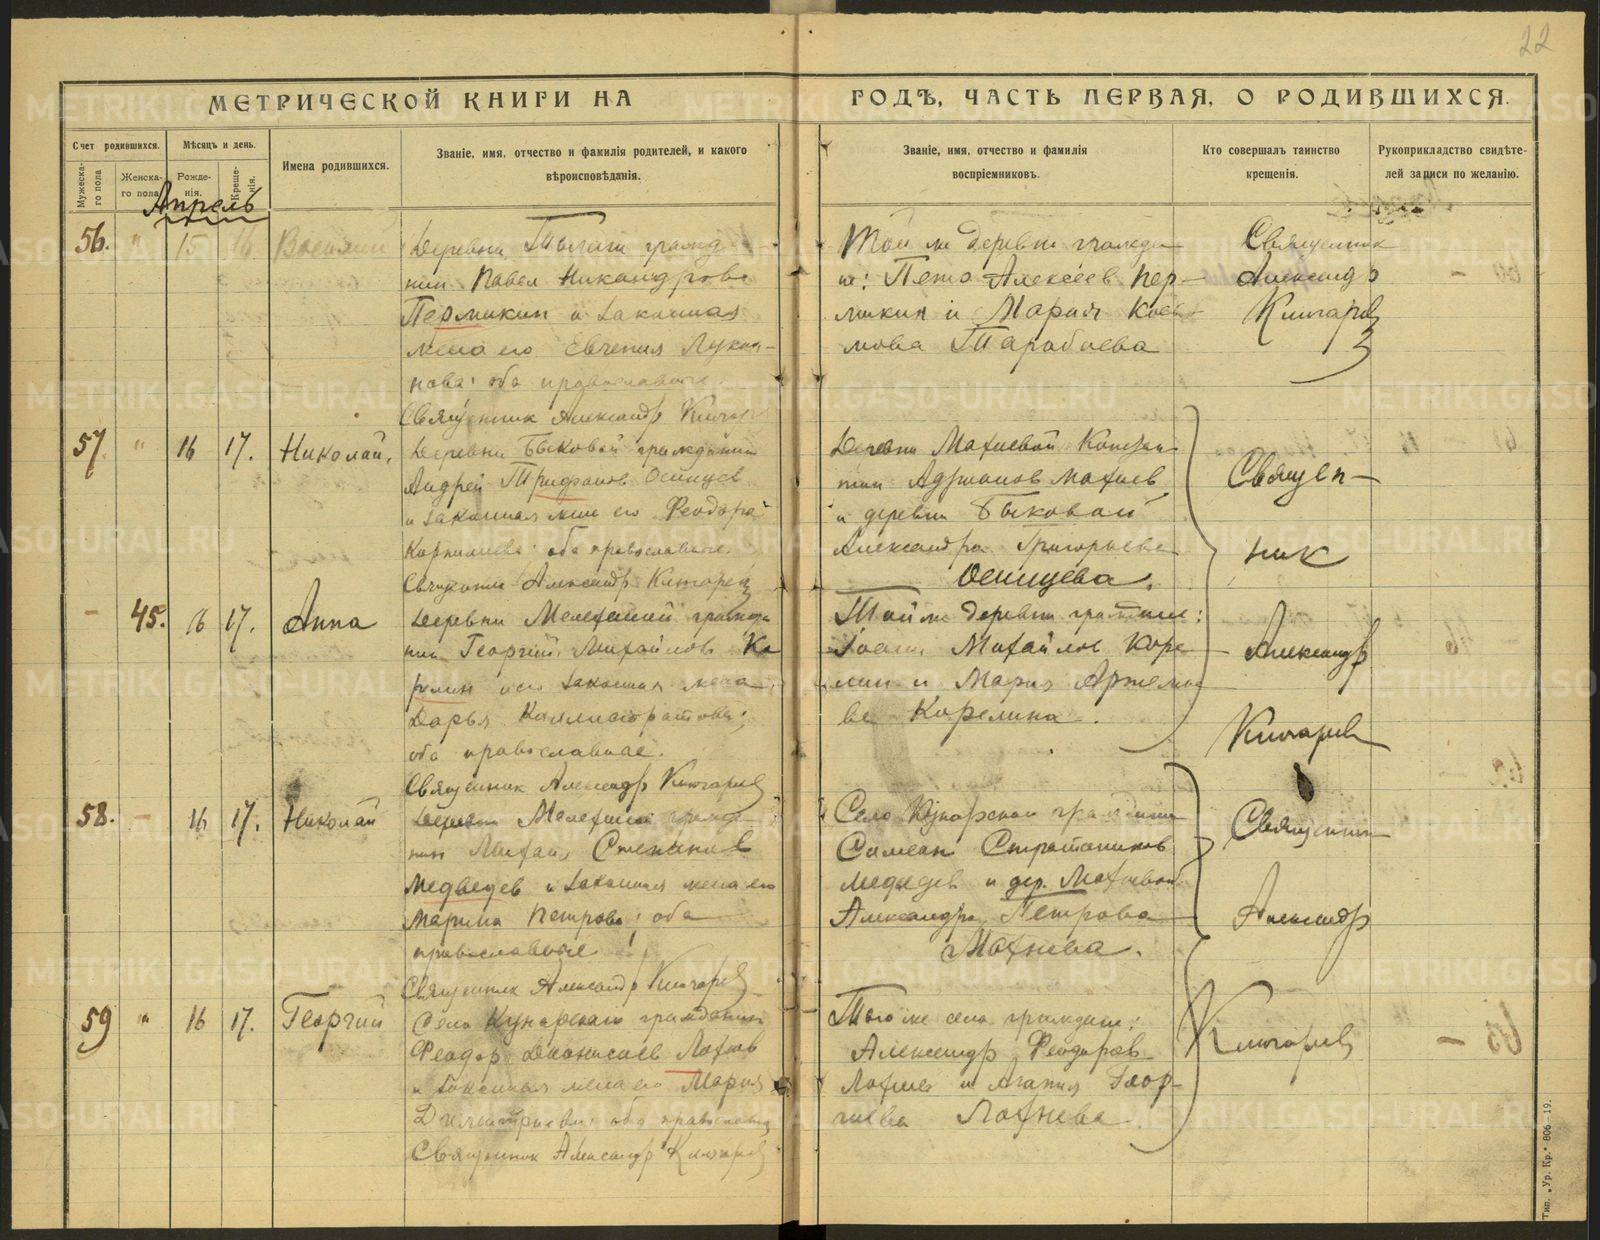 22
МЕТРИЧЕСКОЙ КНИГИ НА
ГОДЪ, ЧАСТЬ ПЕРВАЯ, О РОДИВШИХСЯ.
Счет родившихся.
Мѣсяцъ и день.
Имена родившихся.
Званіе, имя, отчество и фамилія родителей, и какого
вѣроисповѣданія.
Званіе, имя, отчество и фамилія
воспріемниковъ.
Кто совершалъ таинство
крещенія.
Рукоприкладство свидѣте-
лей записи по желанію.
Мужеска-
го пола
Женска-
го пола
Рожде-
нія.
Креще-
нія.
Апрель
56. " 15 16 Василий
Деревни гражда
нин Павел Никандров
Пермикин и законная
жена его Евгения Лукия-
нова: оба православные.
Священник Александр Ключарев
Той же деревни граждан
не: Петр Алексеев Пер-
микин и Мария
Священник
Александр
Ключарев
57. " 16 17. Николай,
Деревни Быковой гражданин
Андрей Трифонов Осинцев
и законная жена его Феодора
Корнилиева: оба православные.
Священник Александр Ключарев
Деревни Махневой Констан
тин Махнев
и деревни Быковой
Александра Григорьева
Осинцева.
Священ-
ник
Александр
Ключарев
- 45. 16 17. Анна
Деревни гражда
нин Георгий Михайлов Ко
релин и его законная жена
Дарья Каллистратова;
оба православные.
Священник Александр Ключарев
Той же деревни граждане:
Иоанн Михайлов Коре
лин и Мария Артемье
ва Корелина.
58. - 16 17. Николай
Деревни гражда
нин Михаил Степанов
Медведев и законная жена его
Марина Петрова; оба
православные
Священник Александр Ключарев
Село Кунарскаго гражданин
Симеон Стратоников
Медведев и дер. Махневой
Александра Петрова
Махнева.
Священник
Александр
Ключарев
59 " 16 17. Георгий
Село Кунарскаго гражданин
Феодор Дионисиев Лохнев
и законная жена его Мария
Димитриева: оба православные
Священник Александр Ключарев
Того же села граждане:
Александр Феодоров
Лохнев и Агапия Геор-
гиева Лохнева
Тип. „Ур. Кр." 806—19.
METRIKI.GASO-URAL.RU